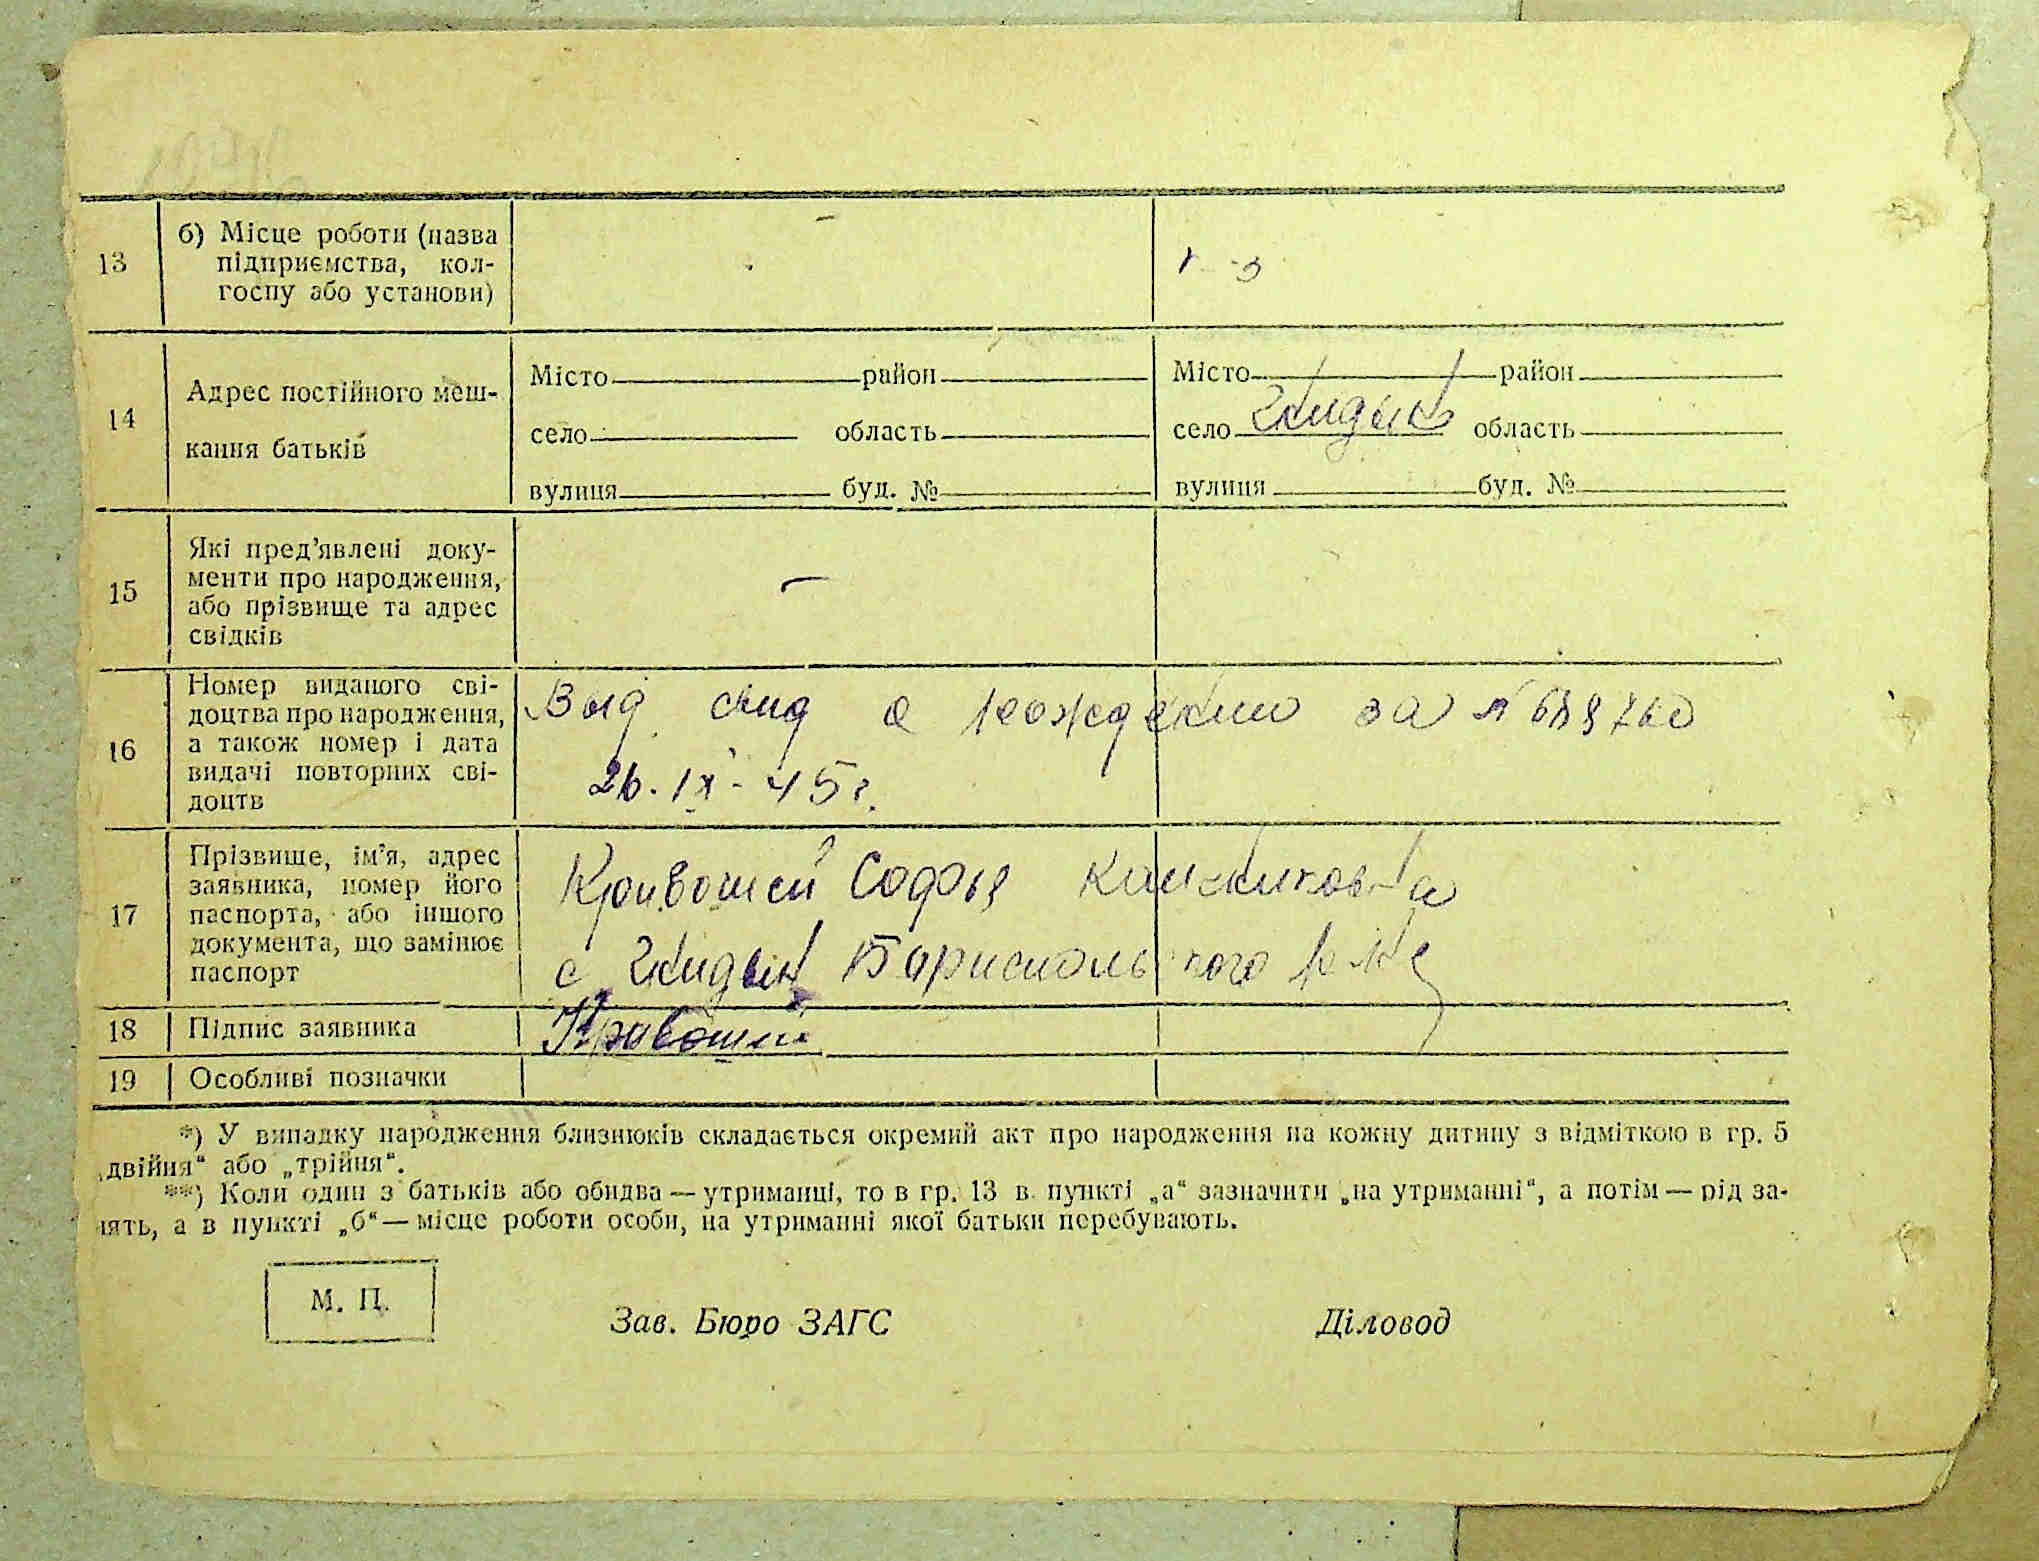 13
б) Місце роботи (назва
підприємства, кол-
госпу або установи)
–
14
Адрес постійного меш-
кання батьків
Місто район
село область
вулиця буд. №
Місто район
село область
вулиця буд. №
15
Які пред'явлені доку-
менти про народження,
або прізвище та адрес
свідків
–
16
Номер виданого сві-
доцтва про народження,
а також номер і дата
видачі повторних сві-
доцтв
Выд свид о рождении за №
26.IX-45г.
17
Прізвище, ім'я, адрес
заявника, номер його
паспорта, або іншого
документа, що замінює
паспорт
Кривошей Софья
с Бориспольского р-на
18
Підпис заявника
Кривошей
19
Особливі позначки
*) У випадку народження близнюків складається окремий акт про народження на кожну дитину з відміткою в гр. 5
„двійня" або „трійня".
**) Коли один з батьків або обидва — утриманці, то в гр. 13 в пункті „а" зазначити „на утриманні", а потім — рід за-
нять, а в пункті „б" — місце роботи особи, на утриманні якої батьки перебувають.
М. П.
Зав. Бюро ЗАГС
Діловод